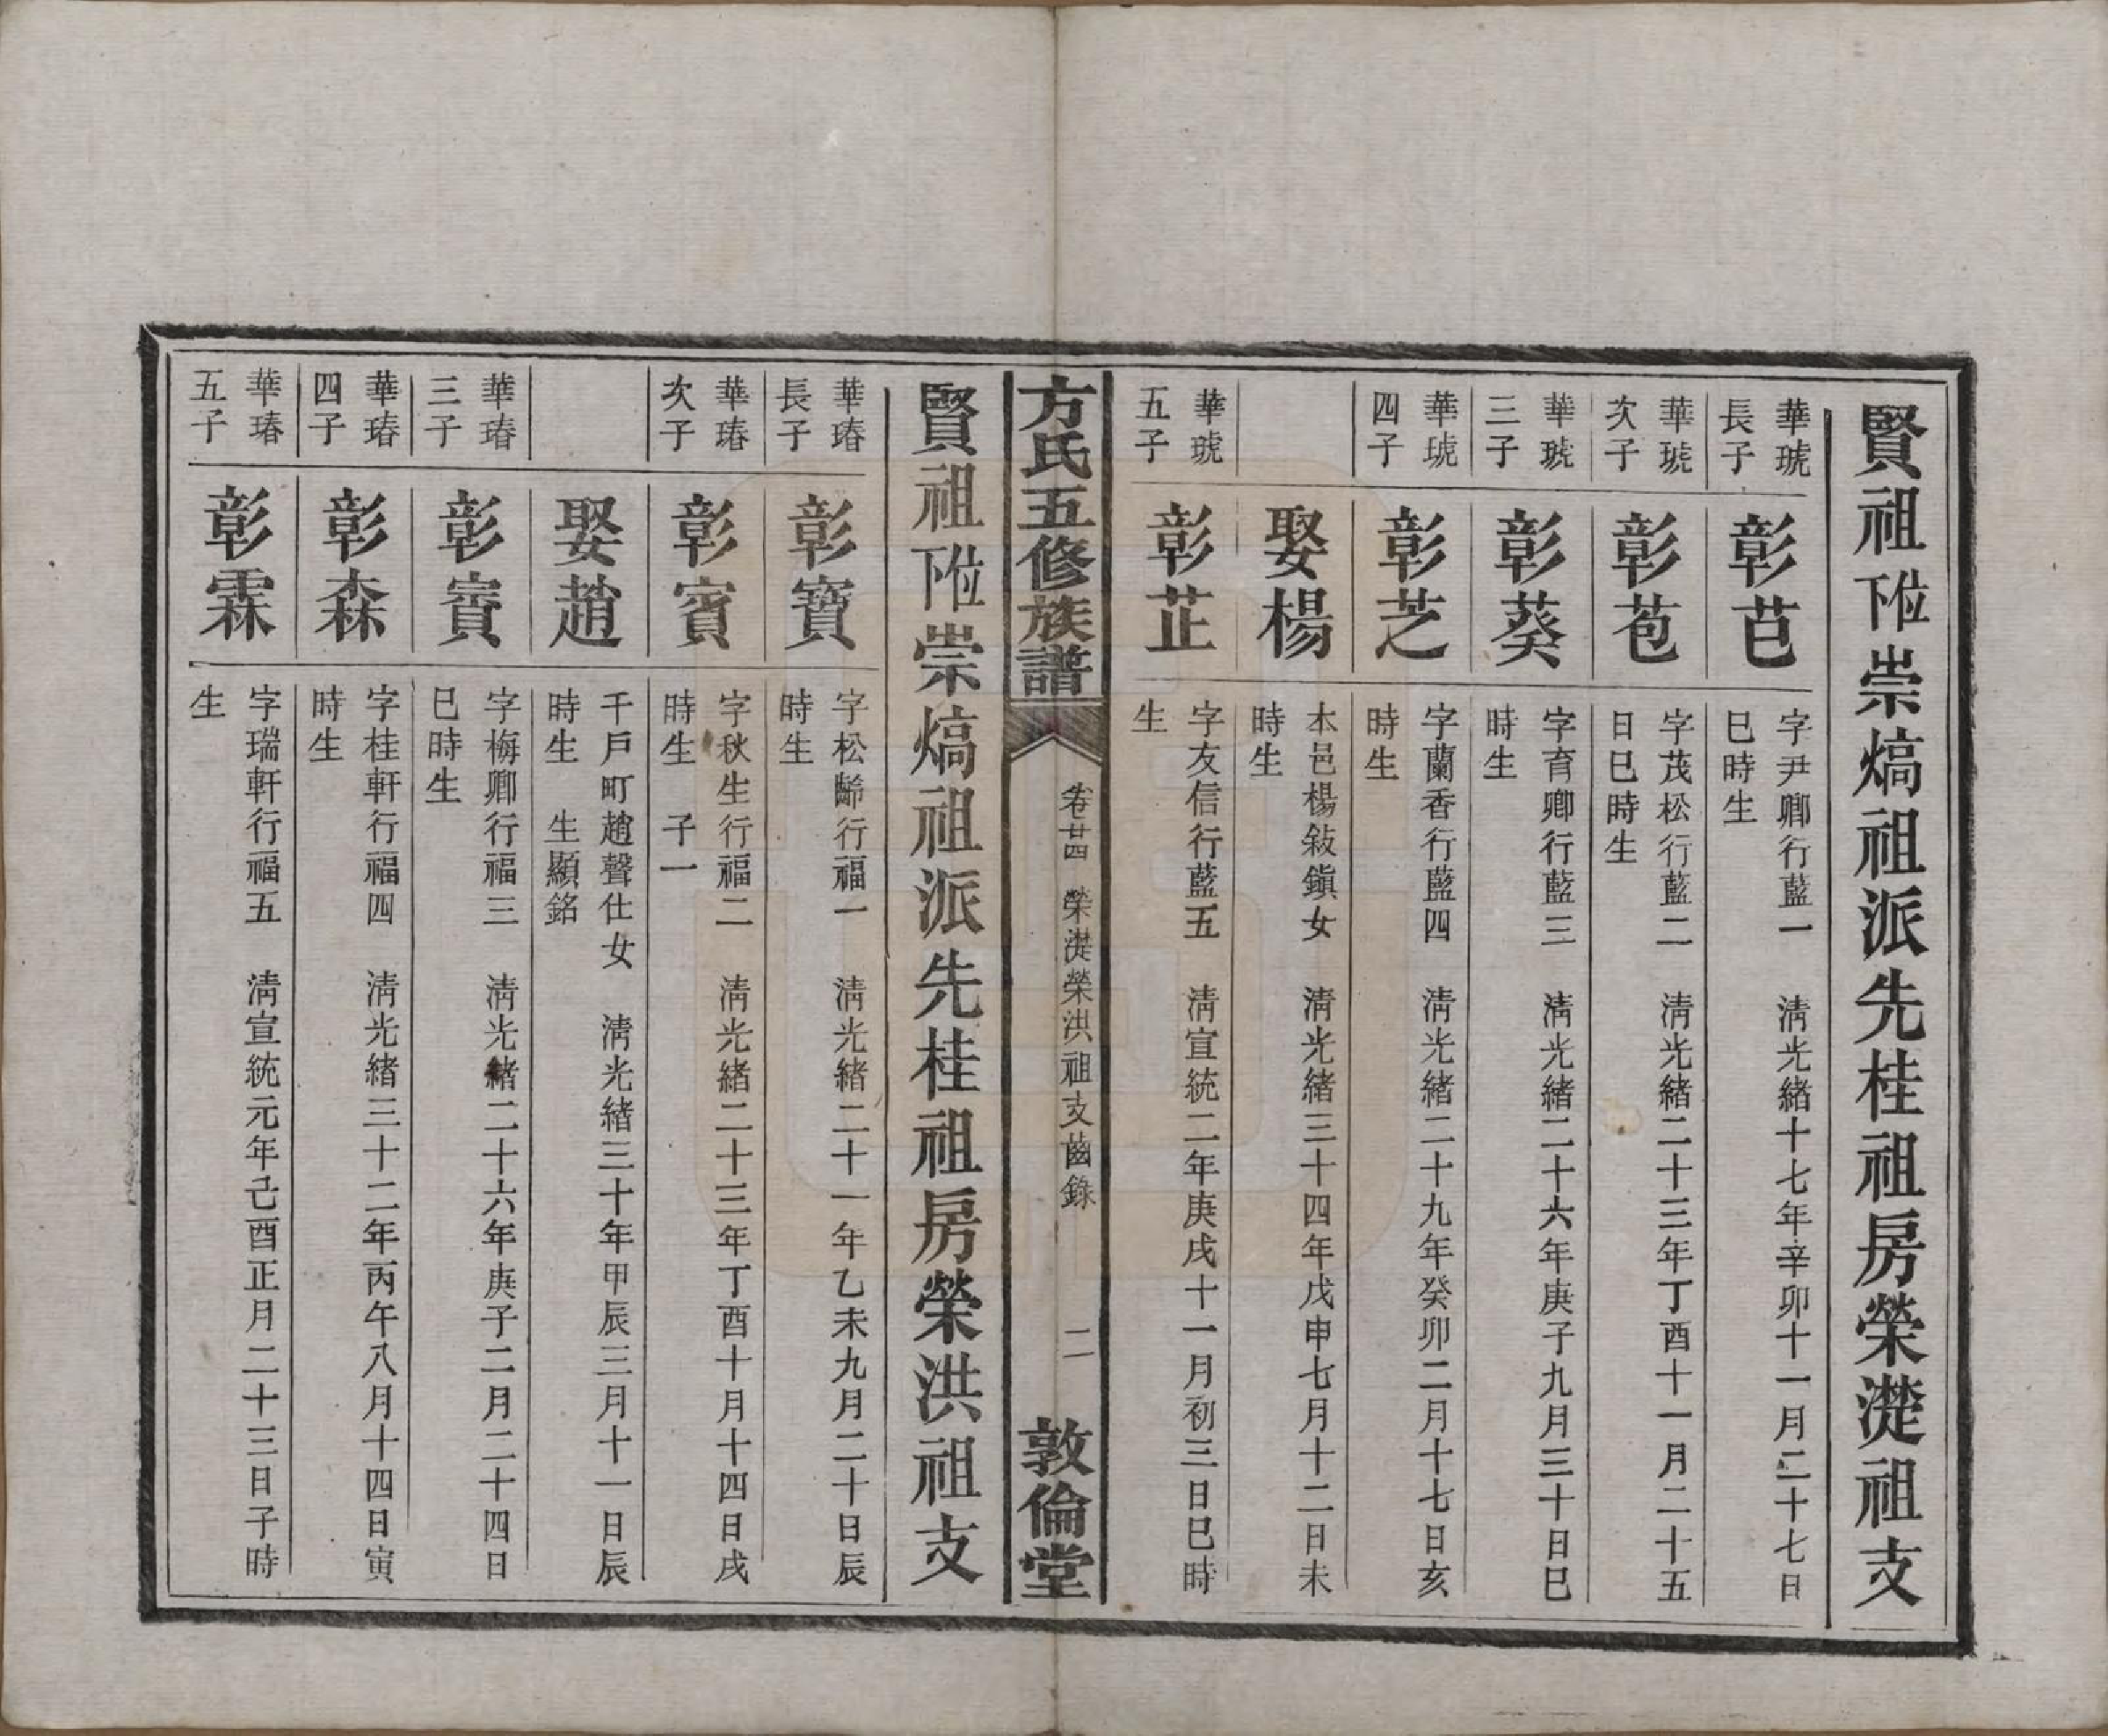 賢祖阼崇熇祖派先桂祖房榮濋祖支
華琥
長子
彰芑
字尹卿行藍一　清光緒十七年辛卯十一月二十七日
巳時生
華琥
次子
彰苞
字茂松行藍二　清光緒二十三年丁酉十一月二十五
日巳時生
華琥
三子
彰葵
字育卿行藍三　清光緒二十六年庚子九月三十日巳
時生
華琥
四子
彰芝
字蘭香行藍四　清光緒二十九年癸卯二月十七日亥
時生
娶楊
本邑楊敍鎭女　清光緒三十四年戊申七月十二日未
時生
華琥
五子
彰芷
字友信行藍五　清宣統二年庚戌十一月初三日巳時
生
方氏五修族譜
卷廿四　榮濋榮洪祖支齒錄
二
敦倫堂
賢祖阼崇熇祖派先桂祖房榮洪祖支
華瑃
長子
彰寶
字松齡行福一　清光緒二十一年乙未九月二十日辰
時生
華瑃
次子
彰賓
字秋生行福二　清光緒二十三年丁酉十月十四日戌
時生　子一
娶趙
千戶町趙聲仕女　清光緒三十年甲辰三月十一日辰
時生　生顯銘
華瑃
三子
彰賨
字梅卿行福三　清光緒二十六年庚子二月二十四日
巳時生
華瑃
四子
彰森
字桂軒行福四　清光緒三十二年丙午八月十四日寅
時生
華瑃
五子
彰霖
字瑞軒行福五　清宣統元年己酉正月二十三日子時
生